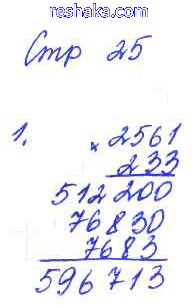 reshaka.com
Стр 25
1. × 2561
233
512 200
76830
7683
596713